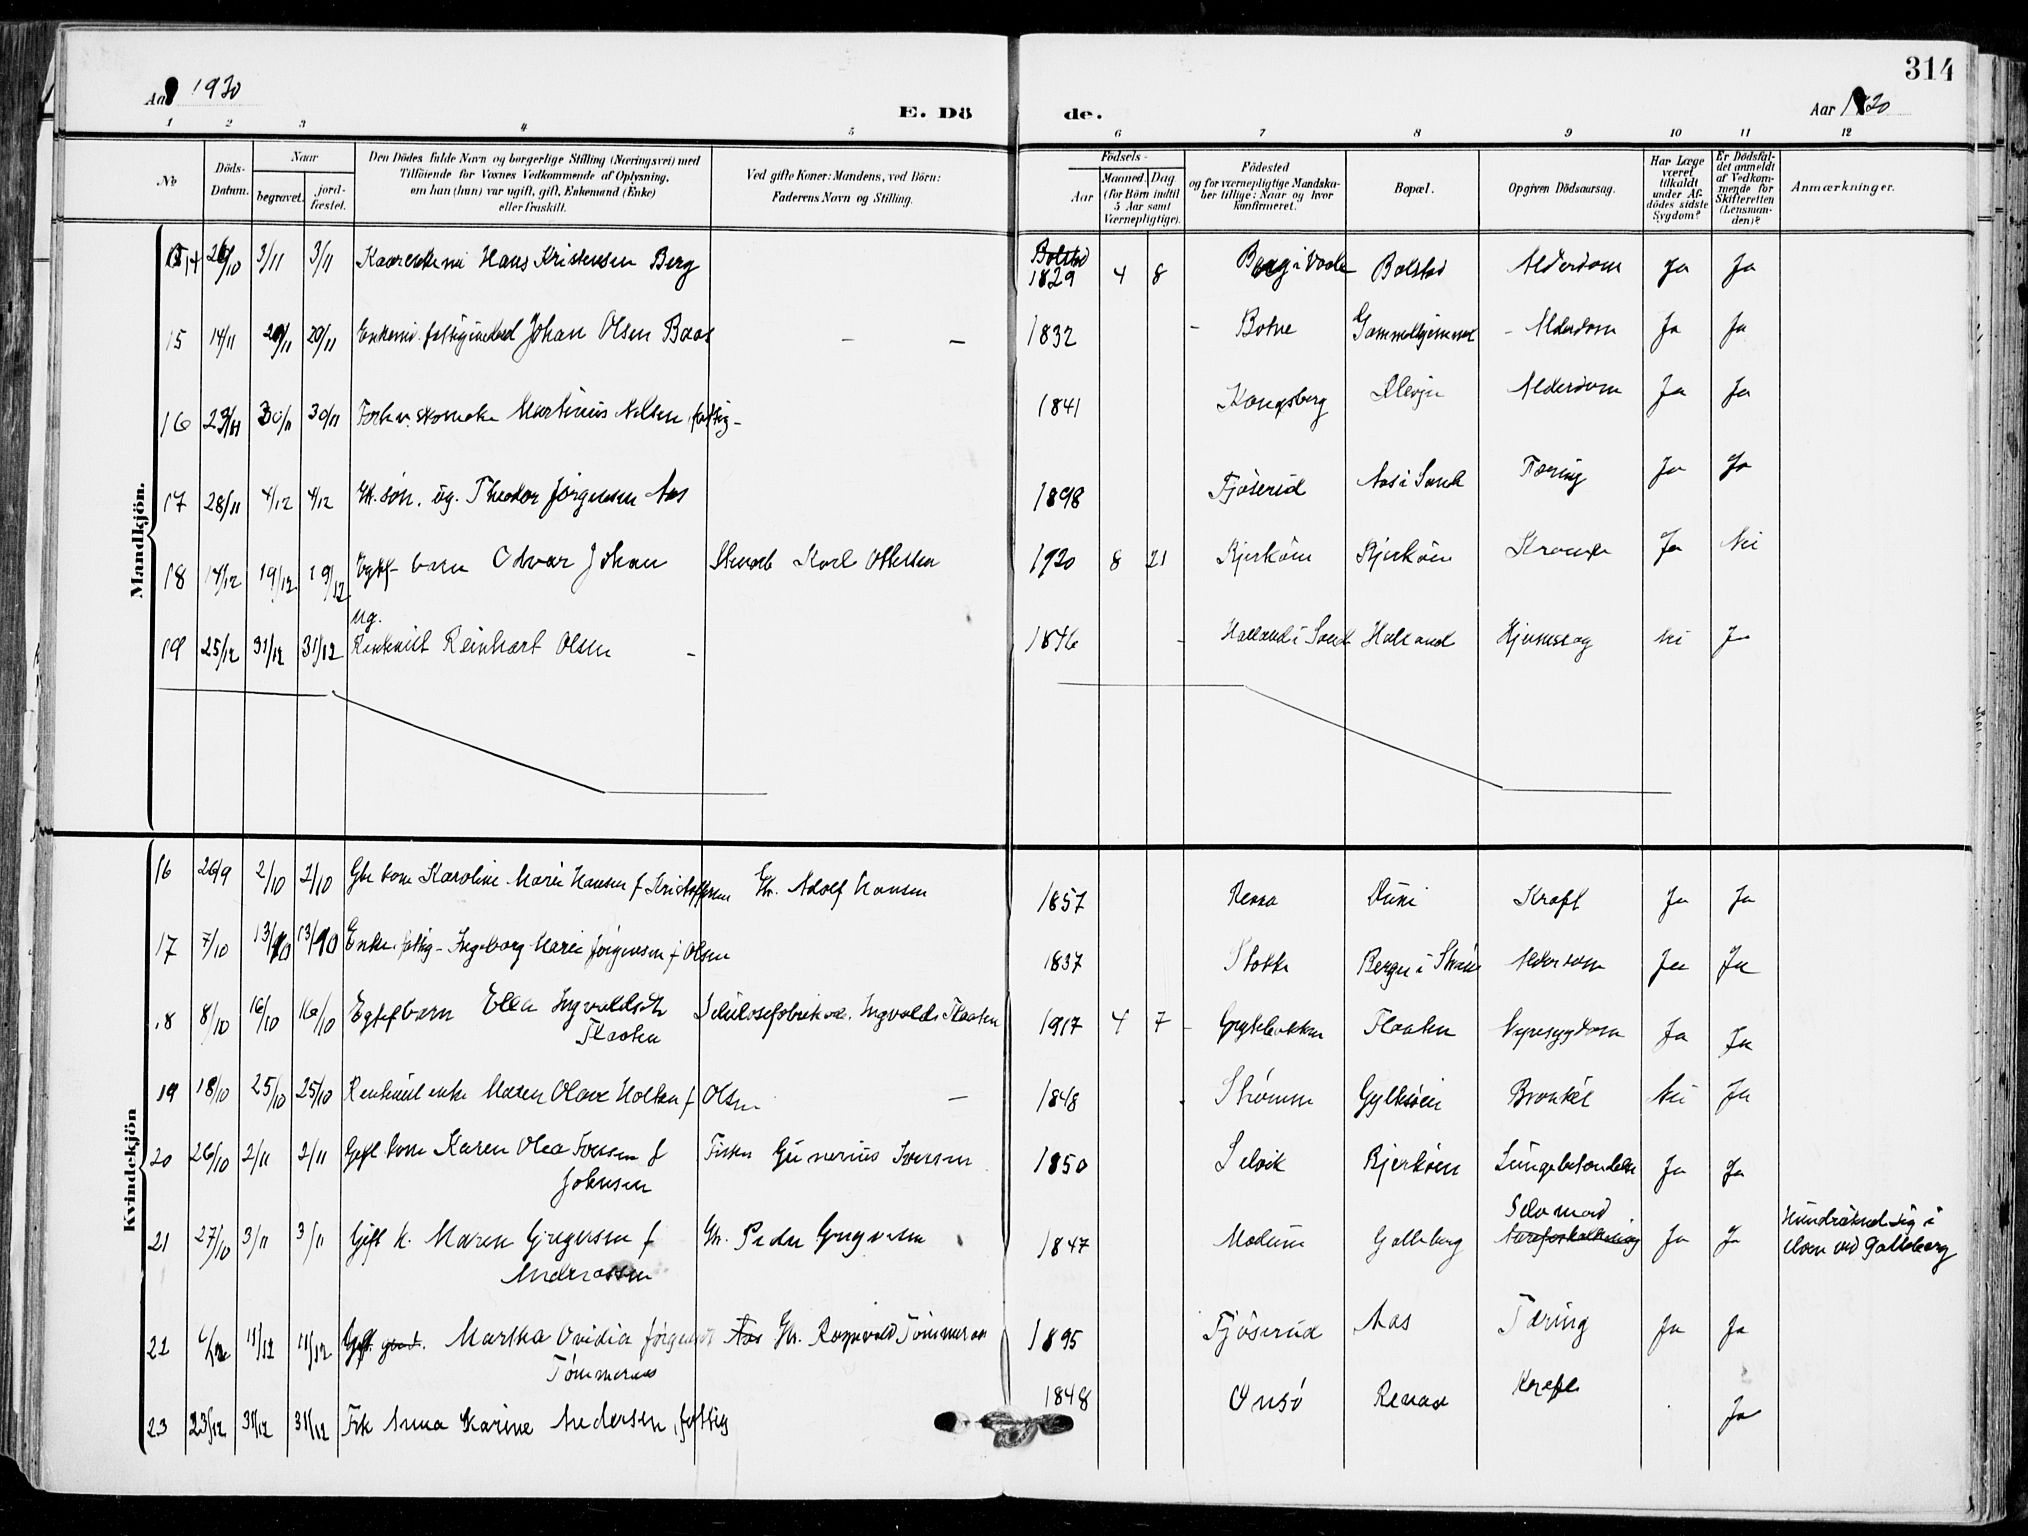 314
Aar 1920
E. Döde.
Aar 1920
1 2 3 4 5 6 7 8 9 10 11 12
No
Döds-Datum.
Naar
begravet.
jordfæstet.
Den Dödes fulde Navn og borgerlige Stilling (Næringsvei) med
Tilföiende for Voxnes Vedkommende af Oplysning,
om han (hun) var ugift, gift, Enkemand (Enke)
eller fraskilt.
Ved gifte Koner: Mandens, ved Börn:
Faderens Navn og Stilling.
Födsels-
Aar
Maaned. Dag
(for Börn indtil
5 Aar samt
Værnepligtige).
Födested
og for værnepligtige Mandskaber tillige: Naar og hvor
konfirmeret.
Bopæl.
Opgiven Dödsaarsag.
Har Læge
været
tilkaldt
under Afdödes sidste
Sygdom?
Er Dödsfaldet anmeldt
af Vedkommende for
Skifteretten
(Lensmanden)?
Anmærkninger.
Mandkjön.
14 26/10 3/11 3/11 Hans Kristensen Berg 1829 4 8 Berg i Bolstad Alderdom Ja Ja
15 14/11 20/11 20/11 Johan Olsen Baas — — 1832 - Botne Gammelhjemmet - Alderdom Ja Ja
16 23/11 30/11 30/11 Forhv. skomaker Martinius Nilsen, fattig - 1841 Kongsberg Alderdom Ja Ja
17 28/11 4/12 4/12 Gb. sön. ug. Theodor Jörgensen Aas 1898 Fjöserud Aas i Sand Tæring Ja Ja
18 14/12 19/12 19/12 Egtef. barn Odvar Johan Karl Ottersen 1920 8 21 Bjerköen Bjerköen Krampe Ja Nei
ug.
19 25/12 31/12 31/12 Reinhart Olsen - 1846 - Halland i Sand Halland Nei Ja
Kvindekjön
16 26/9 2/10 2/10 Karoline Marie Hansen f. Kristoffersen Gbr. Adolf Hansen 1857 Kræft Ja Ja
17 7/10 13/10 13/10 Enke, fattig - Ingeborg Marie Jörgensen f. Olsen 1837 Stokke Alderdom Ja Ja
18 8/10 16/10 16/10 Egtef barn Ella Ingvaldsdtr.
Flaaten Ingvald Flaaten 1917 4 7 - Flaaten Nyresygdom Ja Ja
19 18/10 25/10 25/10 enke Maren Olava Holtan f. Olsen — 1848 Strømm Bronkit Nei Ja
20 26/10 2/11 2/11 Gift kone Karen Olea Iversen f.
Johnsen Fisker Gunerius Iversen 1850 Selvik Bjerköen Lungebetændelse Ja Ja
21 27/10 3/11 3/11 Gift k. Maren Gregersen f.
Andreassen Gbr. Peder Gregersen 1847 Modum Galleberg Selvmord
Aareforkalkning Ja Ja
elven ved Galleberg
22 11/12 11/12 Gift Martha Ovidia Jörgensen Aas
Tömmeraas Gbr. Ragnvald Tömmeraas 1895 Fjöserud Aas Tæring Ja Ja
23 23/12 31/12 31/12 Frk Anna Karine Andersen, fattig 1848 Onsö Kræft Ja